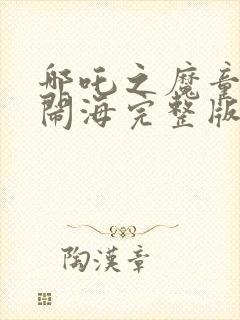 哪吒之魔童
鬧海完整版
陶漢章